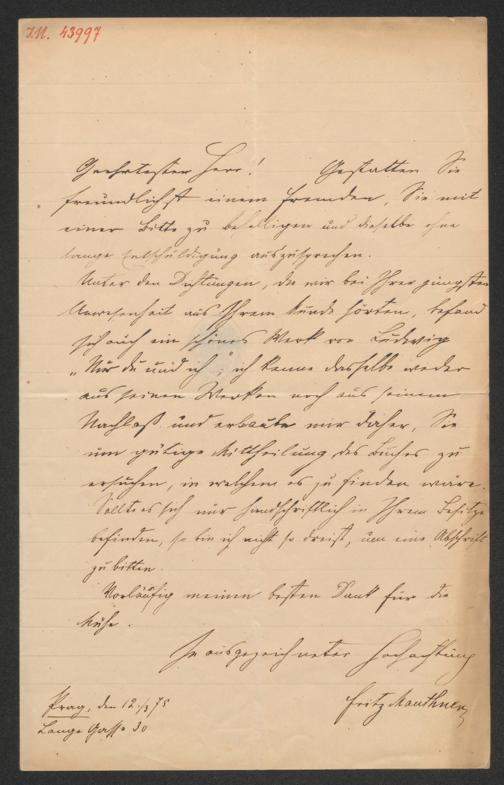 I.N. 43997
Geehrtester Herr! Gestatten Sie
freundlichst einem Fremden, Sie mit
einer Bitte zu behelligen und dieselbe ohne
lange Entschuldigung auszusprechen.
Unter den Dichtungen, die wir bei Ihrer jüngsten
Anwesenheit aus Ihrem Munde hörten, befand
sich auch ein schönes Werk von Ludwig
„Nur du und ich"; ich kenne dasselbe weder
aus seinen Werken noch aus seinem
Nachlaß und erlaube mir daher, Sie
um gütige Mittheilung des Buches zu
ersuchen, in welchem es zu finden wäre.
Sollte es sich nur handschriftlich in Ihrem Besitze
befinden, so bin ich nicht so dreist, um eine Abschrift
zu bitten.
Vorläufig meinen besten Dank für die
Mühe.
In ausgezeichneter Hochachtung
Fritz Mauthner
Prag, den 12./3 75
Lange Gasse 30